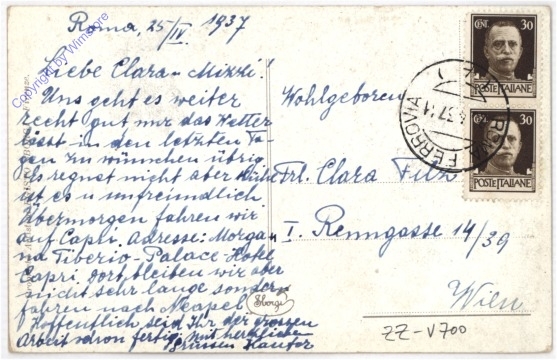 Roma, 25/IV 1937
Liebe Clara-Mizzi!
Uns geht es weiter
recht gut nur das Wetter
lässt in den letzten Ta-
gen zu wünschen übrig.
Es regnet nicht aber
ist es u unfreundlich.
Übermorgen fahren wir
auf Capri. Adresse: Morga-
na Tiberio-Palace-Hotel
Capri. Dort bleiben wir aber
nicht sehr lange sondern
fahren nach Neapel.
Hoffentlich seid Ihr der grossen
Arbeit schon fertig. Mit herzlichen
Grüssen
Wohlgeboren
Frl. Clara
I. Renngasse 14/39
Wien
ZZ-V700
CENT. 30
POSTE ITALIANE
CENT. 30
POSTE ITALIANE
ROMA FERROVIA
Copyright by Wimstore